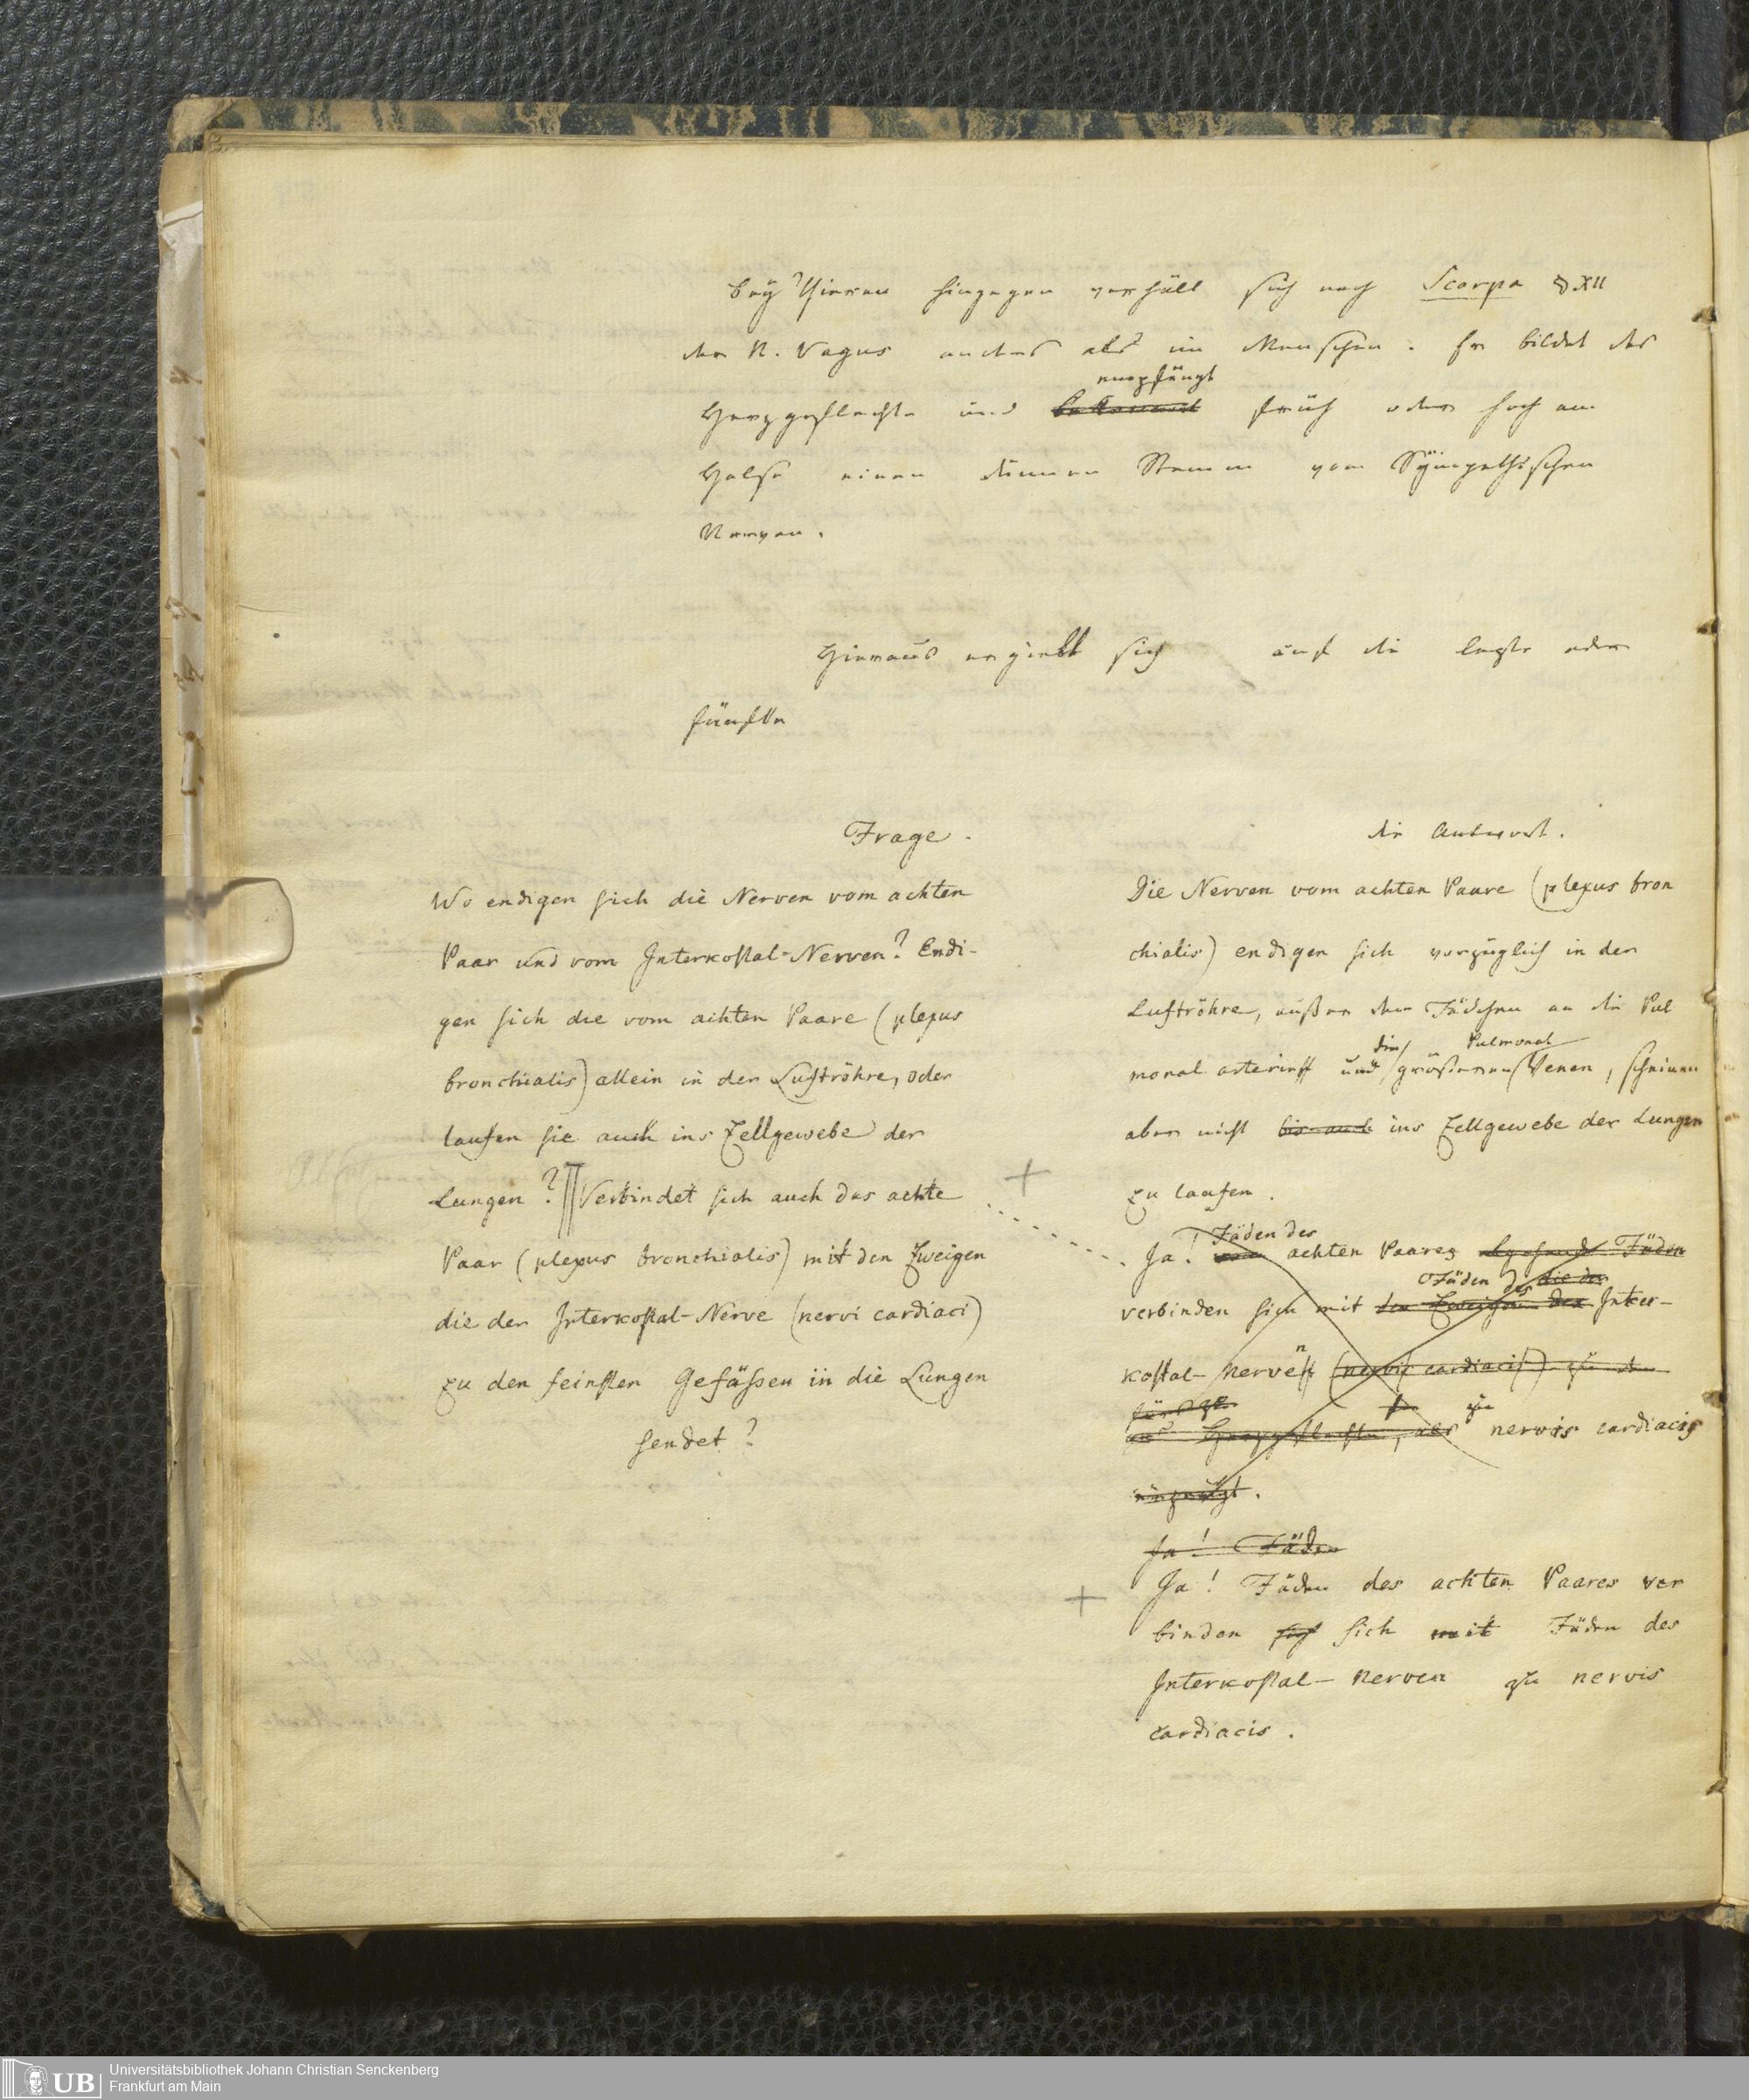 Bey Thieren hingegen verhält sich nach Scarpa § XII
der N. Vagus anders als im Menschen. Er bildet das
empfängt
Herzgeflechte und bekommt früh oder hoch am
Halse einen dünnen Stamm vom Sympathischen
Nerven.
Hieraus ergiebt sich auch die letzte oder
fünfte
Frage.
Wo endigen sich die Nerven vom achten
Paar und vom Interkostal-Nerven? Endi-
gen sich die vom achten Paare (plexus
bronchialis) allein in der Luftröhre, oder
laufen sie auch ins Zellgewebe der
Lungen? Verbindet sich auch das achte
Paar (plexus bronchialis) mit den Zweigen
die der Interkostal-Nerve (nervi cardiaci)
zu den feinsten Gefäßen in die Lungen
sendet?
die Antwort.
Die Nerven vom achten Paare (plexus bron
chialis) endigen sich vorzüglich in der
Luftröhre, außer den Fädchen an die Pul
die Pulmonal
monal arterien und größeren Venen, scheinen
aber nicht bis auch ins Zellgewebe der Lungen
zu laufen.
Fäden des
Ja! vom achten Paares abgehende Fäden
Fäden des die der
verbinden sich mit den Zweigen des Inter-
kostal-Nerven (nervis cardiacis) zu dem
zu
Herzgeflechte, als nervis cardiacis
Ja! Fäden
Ja! Fäden des achten Paares ver
binden sich sich mit Fäden des
Interkostal-Nerven zu nervis
cardiacis.
Universitätsbibliothek Johann Christian Senckenberg
UB Frankfurt am Main